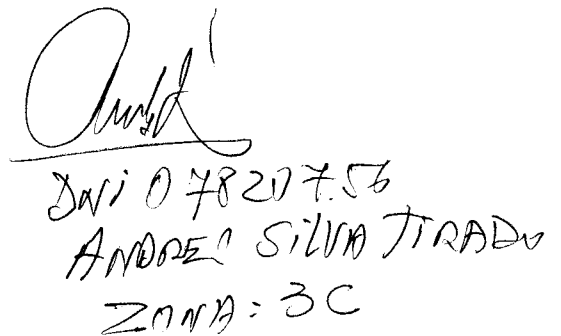 DNI 07820756
ANDRES SILVA TIRADO
ZONA: 3C